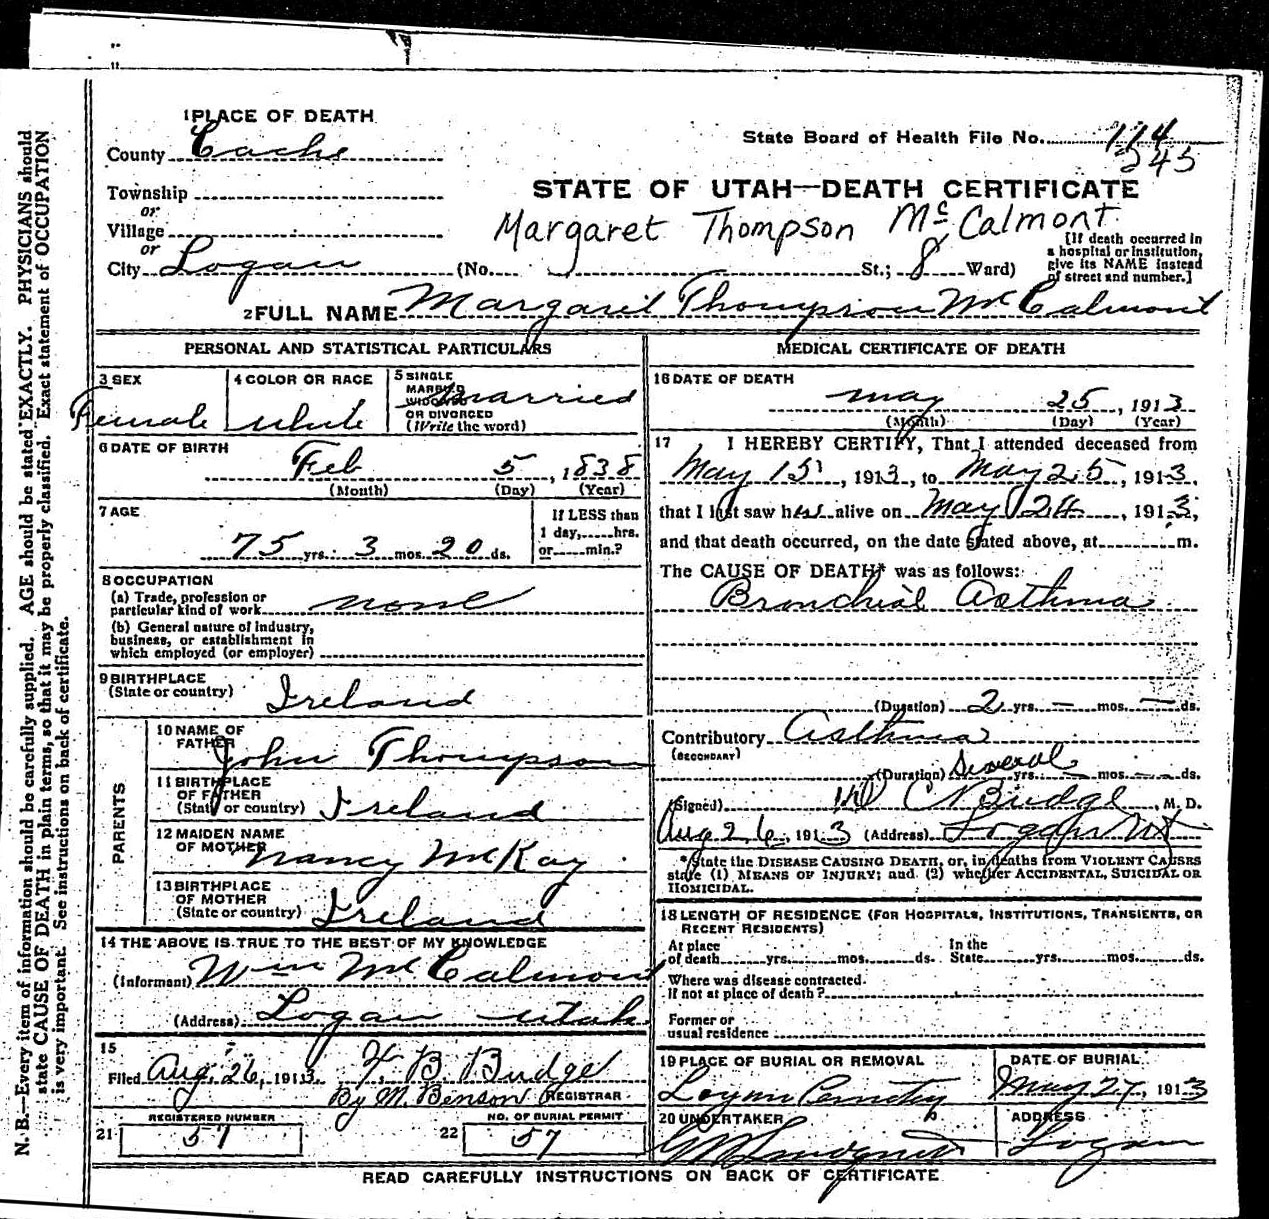 1 PLACE OF DEATH
County Cache
State Board of Health File No. 114
245
Township
or
Village
or
City Logan (No. St.; 8 Ward)
STATE OF UTAH—DEATH CERTIFICATE
Margaret Thompson McCalmont
[If death occurred in
a hospital or institution,
give its NAME instead
of street and number.]
2 FULL NAME Margaret Thompson McCalmont
PERSONAL AND STATISTICAL PARTICULARS
3 SEX
Female
4 COLOR OR RACE
White
5 SINGLE
MARRIED
WIDOWED
OR DIVORCED
(Write the word)
Married
6 DATE OF BIRTH
Feb 5, 1838
(Month) (Day) (Year)
7 AGE
75 yrs. 3 mos. 20 ds.
If LESS than
1 day,.....hrs.
or.....min.?
8 OCCUPATION
(a) Trade, profession or
particular kind of work none
(b) General nature of industry,
business, or establishment in
which employed (or employer)
9 BIRTHPLACE
(State or country) Ireland
PARENTS
10 NAME OF
FATHER John Thompson
11 BIRTHPLACE
OF FATHER
(State or country) Ireland
12 MAIDEN NAME
OF MOTHER Nancy McKay
13 BIRTHPLACE
OF MOTHER
(State or country) Ireland
14 THE ABOVE IS TRUE TO THE BEST OF MY KNOWLEDGE
(Informant) Wm McCalmont
(Address) Logan Utah
15
Filed Aug. 26, 1913. F B Budge
By M. Benson REGISTRAR
REGISTERED NUMBER
21 57
NO. OF BURIAL PERMIT
22 57
MEDICAL CERTIFICATE OF DEATH
16 DATE OF DEATH
May 25, 1913
(Month) (Day) (Year)
17 I HEREBY CERTIFY, That I attended deceased from
May 15, 1913, to May 25, 1913,
that I last saw her alive on May 24, 1913,
and that death occurred, on the date stated above, at m.
The CAUSE OF DEATH* was as follows:
Bronchial Asthma
(Duration) 2 yrs. — mos. — ds.
Contributory Asthma
(SECONDARY)
(Duration) Several yrs. — mos. — ds.
(Signed) Budge, M. D.
Aug 26, 1913 (Address) Logan Ut
*State the DISEASE CAUSING DEATH, or, in deaths from VIOLENT CAUSES
state (1) MEANS OF INJURY; and (2) whether ACCIDENTAL, SUICIDAL OR
HOMICIDAL.
18 LENGTH OF RESIDENCE (FOR HOSPITALS, INSTITUTIONS, TRANSIENTS, OR
RECENT RESIDENTS)
At place
of death yrs. mos. ds.
In the
State yrs. mos. ds.
Where was disease contracted.
If not at place of death?
Former or
usual residence
19 PLACE OF BURIAL OR REMOVAL
Logan Cemetery
DATE OF BURIAL
May 27, 1913
20 UNDERTAKER
ADDRESS
Logan
READ CAREFULLY INSTRUCTIONS ON BACK OF CERTIFICATE
N. B.—Every item of information should be carefully supplied. AGE should be stated EXACTLY. PHYSICIANS should
state CAUSE OF DEATH in plain terms, so that it may be properly classified. Exact statement of OCCUPATION
is very important. See instructions on back of certificate.